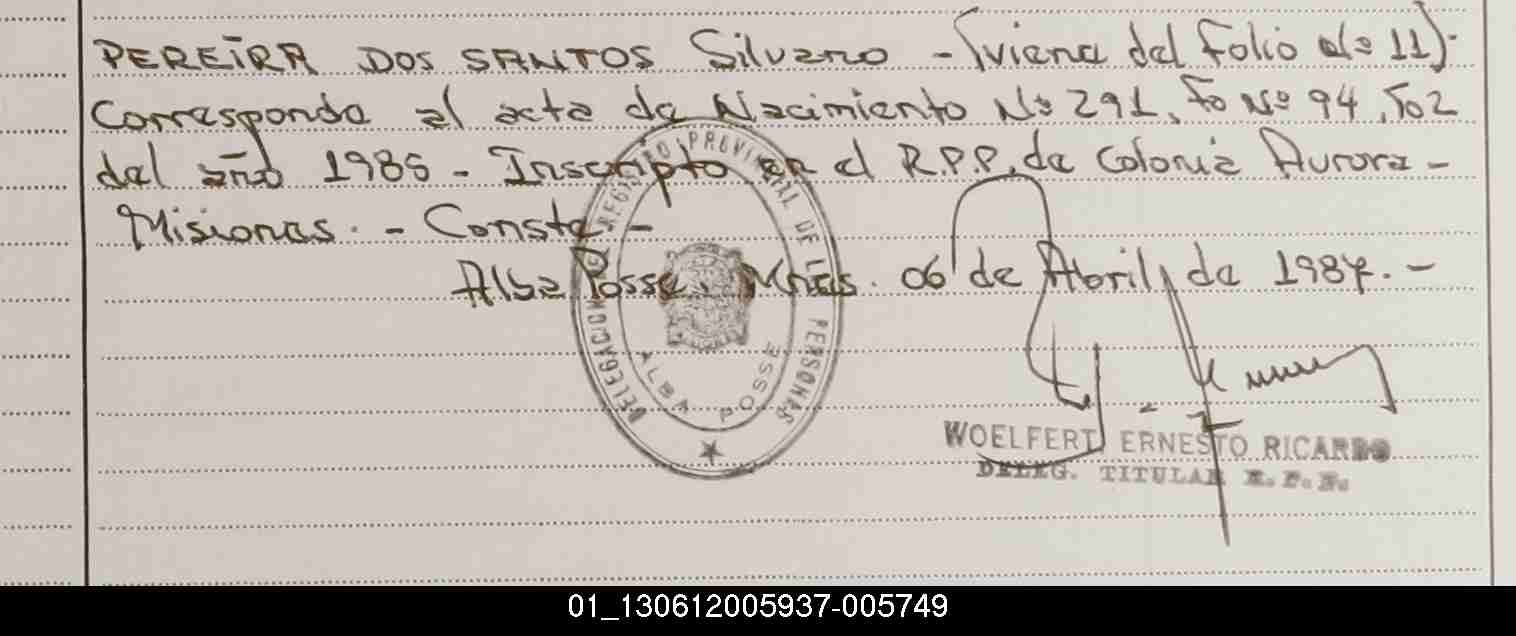 PEREIRA DOS SANTOS Silvano - (viene del Folio No 11)-
Corresponde al acta de Nacimiento No 291, Fo No 94, To 2
del año 1985 - Inscripto en el R.P.P. de Colonia Aurora -
Misiones. - Conste. -
Alba Posse, Mnes. 06 de Abril de 1987. -
DELEGACION DE REGISTRO PROVINCIAL DE LAS PERSONAS
ALBA POSSE
WOELFERT ERNESTO RICARDO
DELEG. TITULAR R. P. P.
01_130612005937-005749